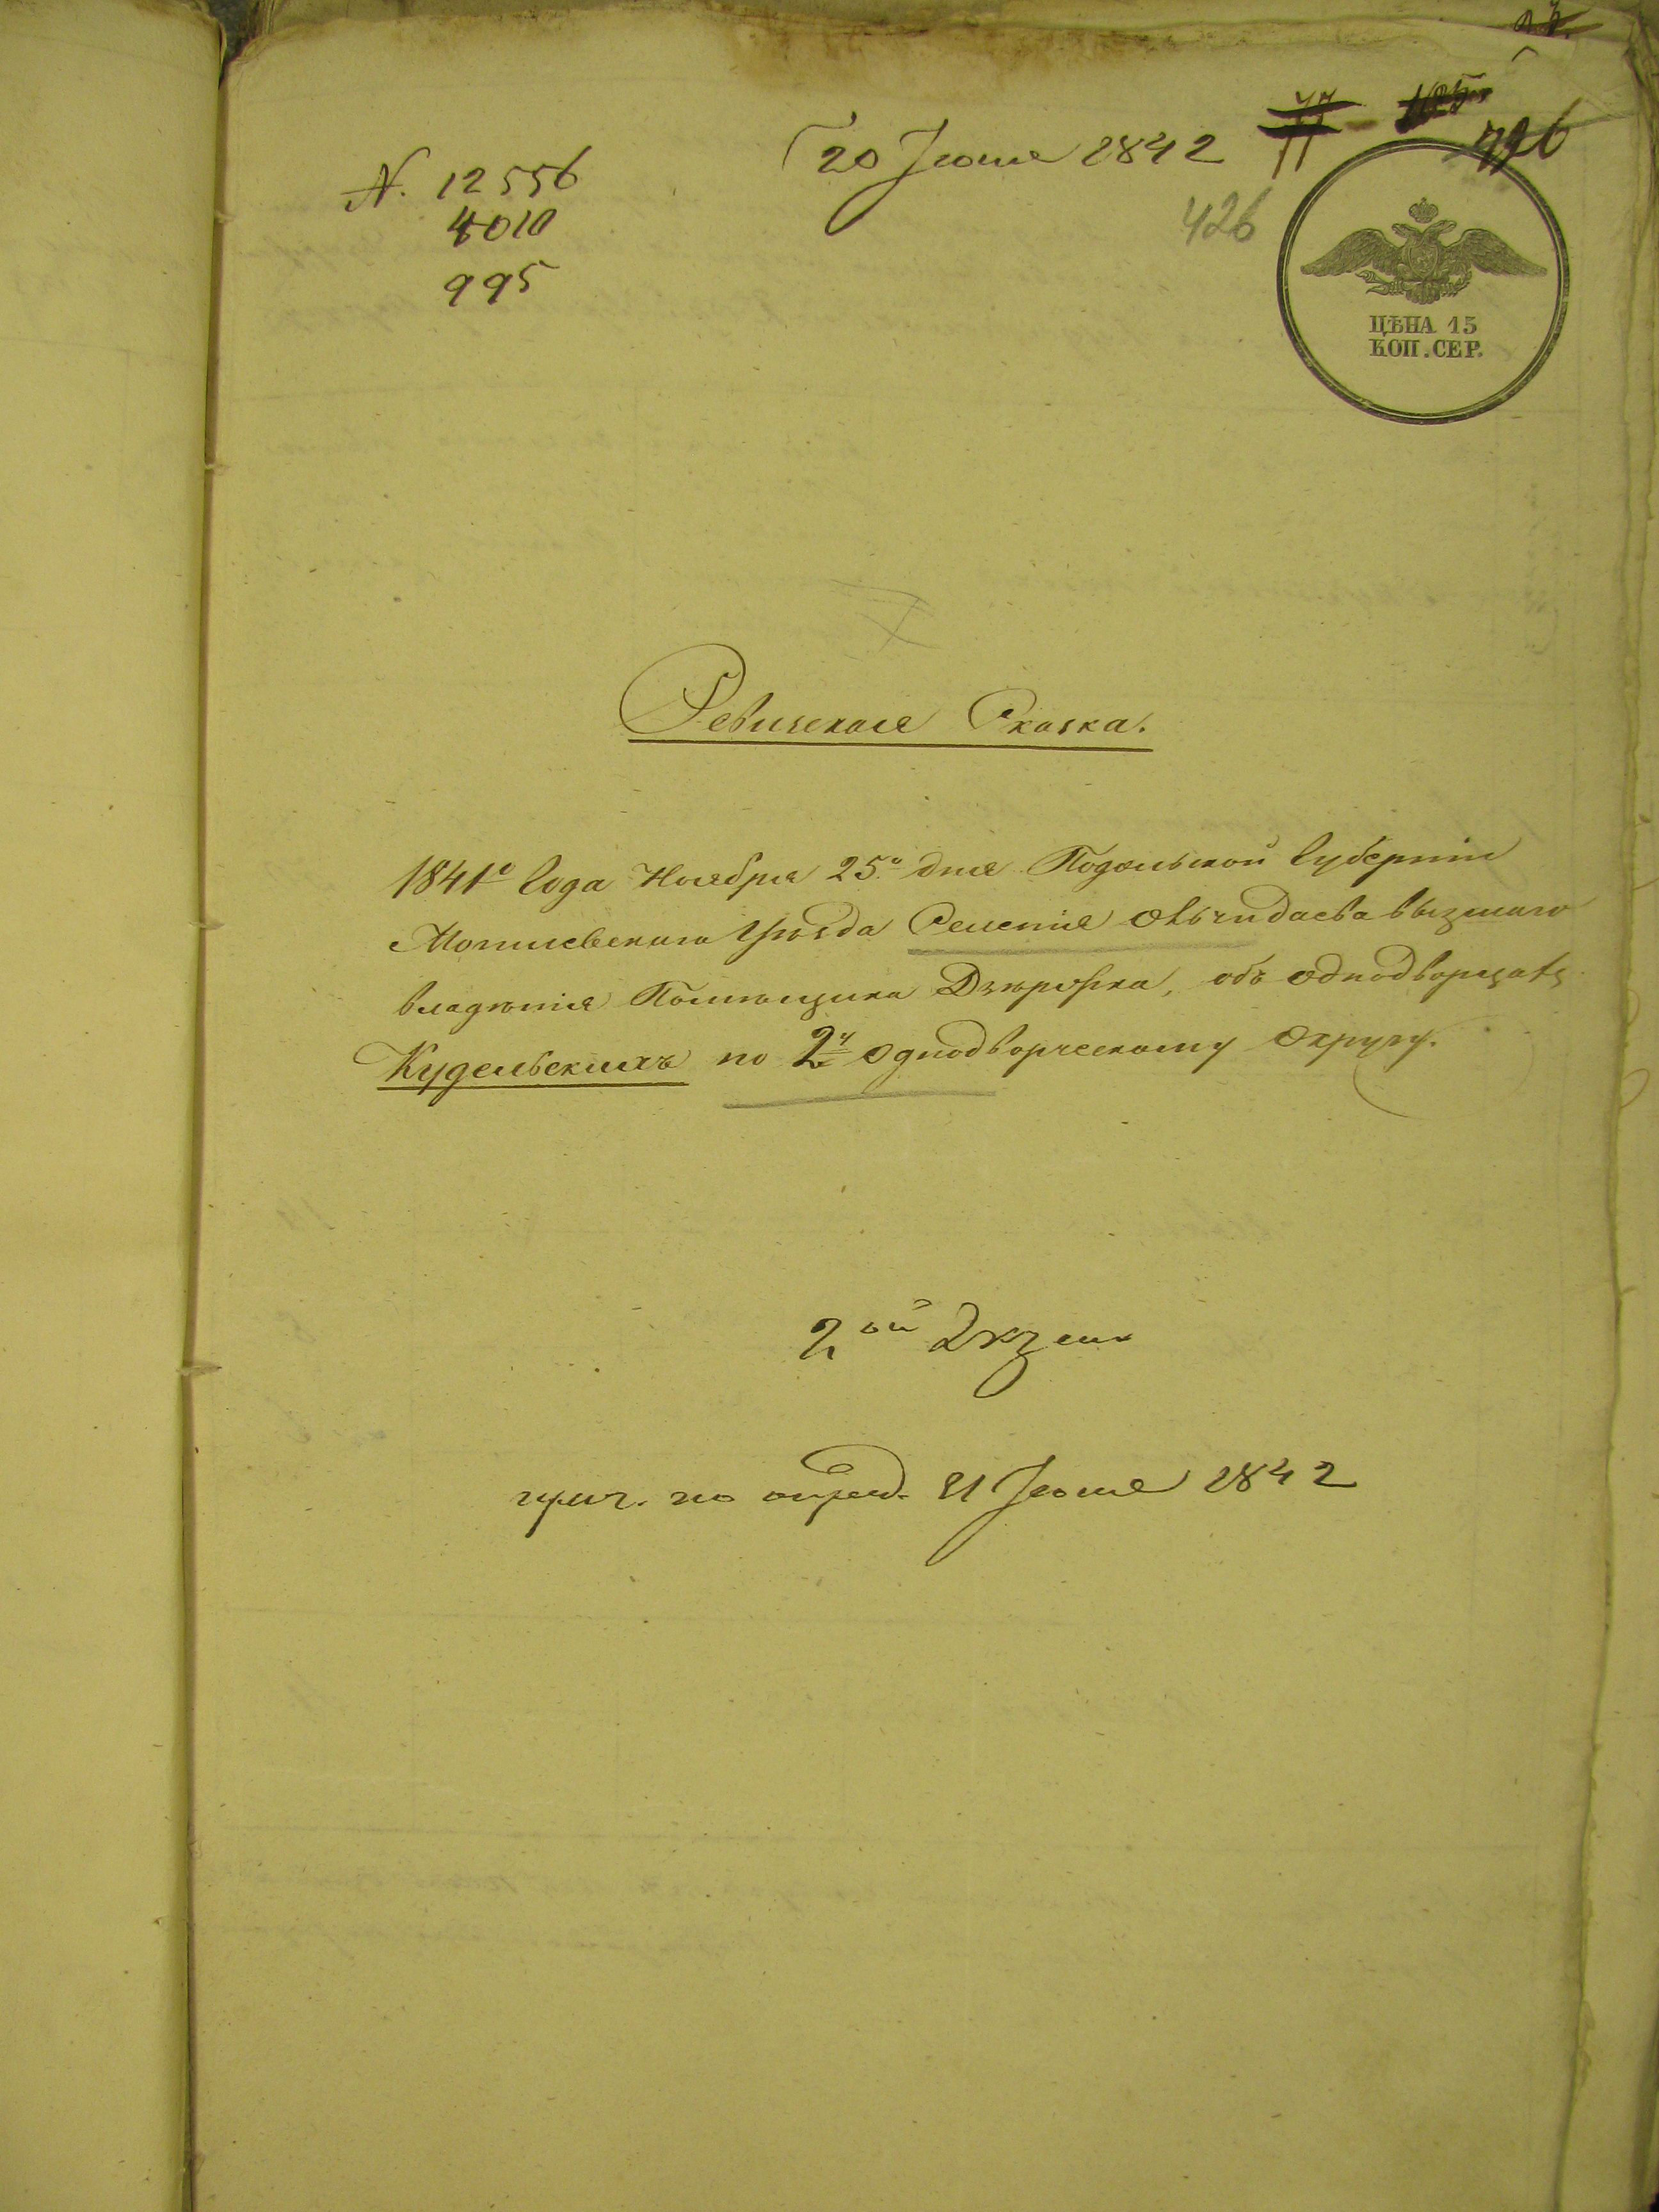 N. 12556
4010
995
20 Июня 1842
77 125
426
ЦѢНА 15
КОП. СЕР.
Ревизская Сказка.
1841го Года Ноября 25го дня Подольской Губерніи
Могилевскаго Уѣзда Селенія
владѣнія Помѣщика объ однодворцахъ
Кудельскихъ по 2му однодворческому округу.
2ой
по опред. 21 Июня 1842